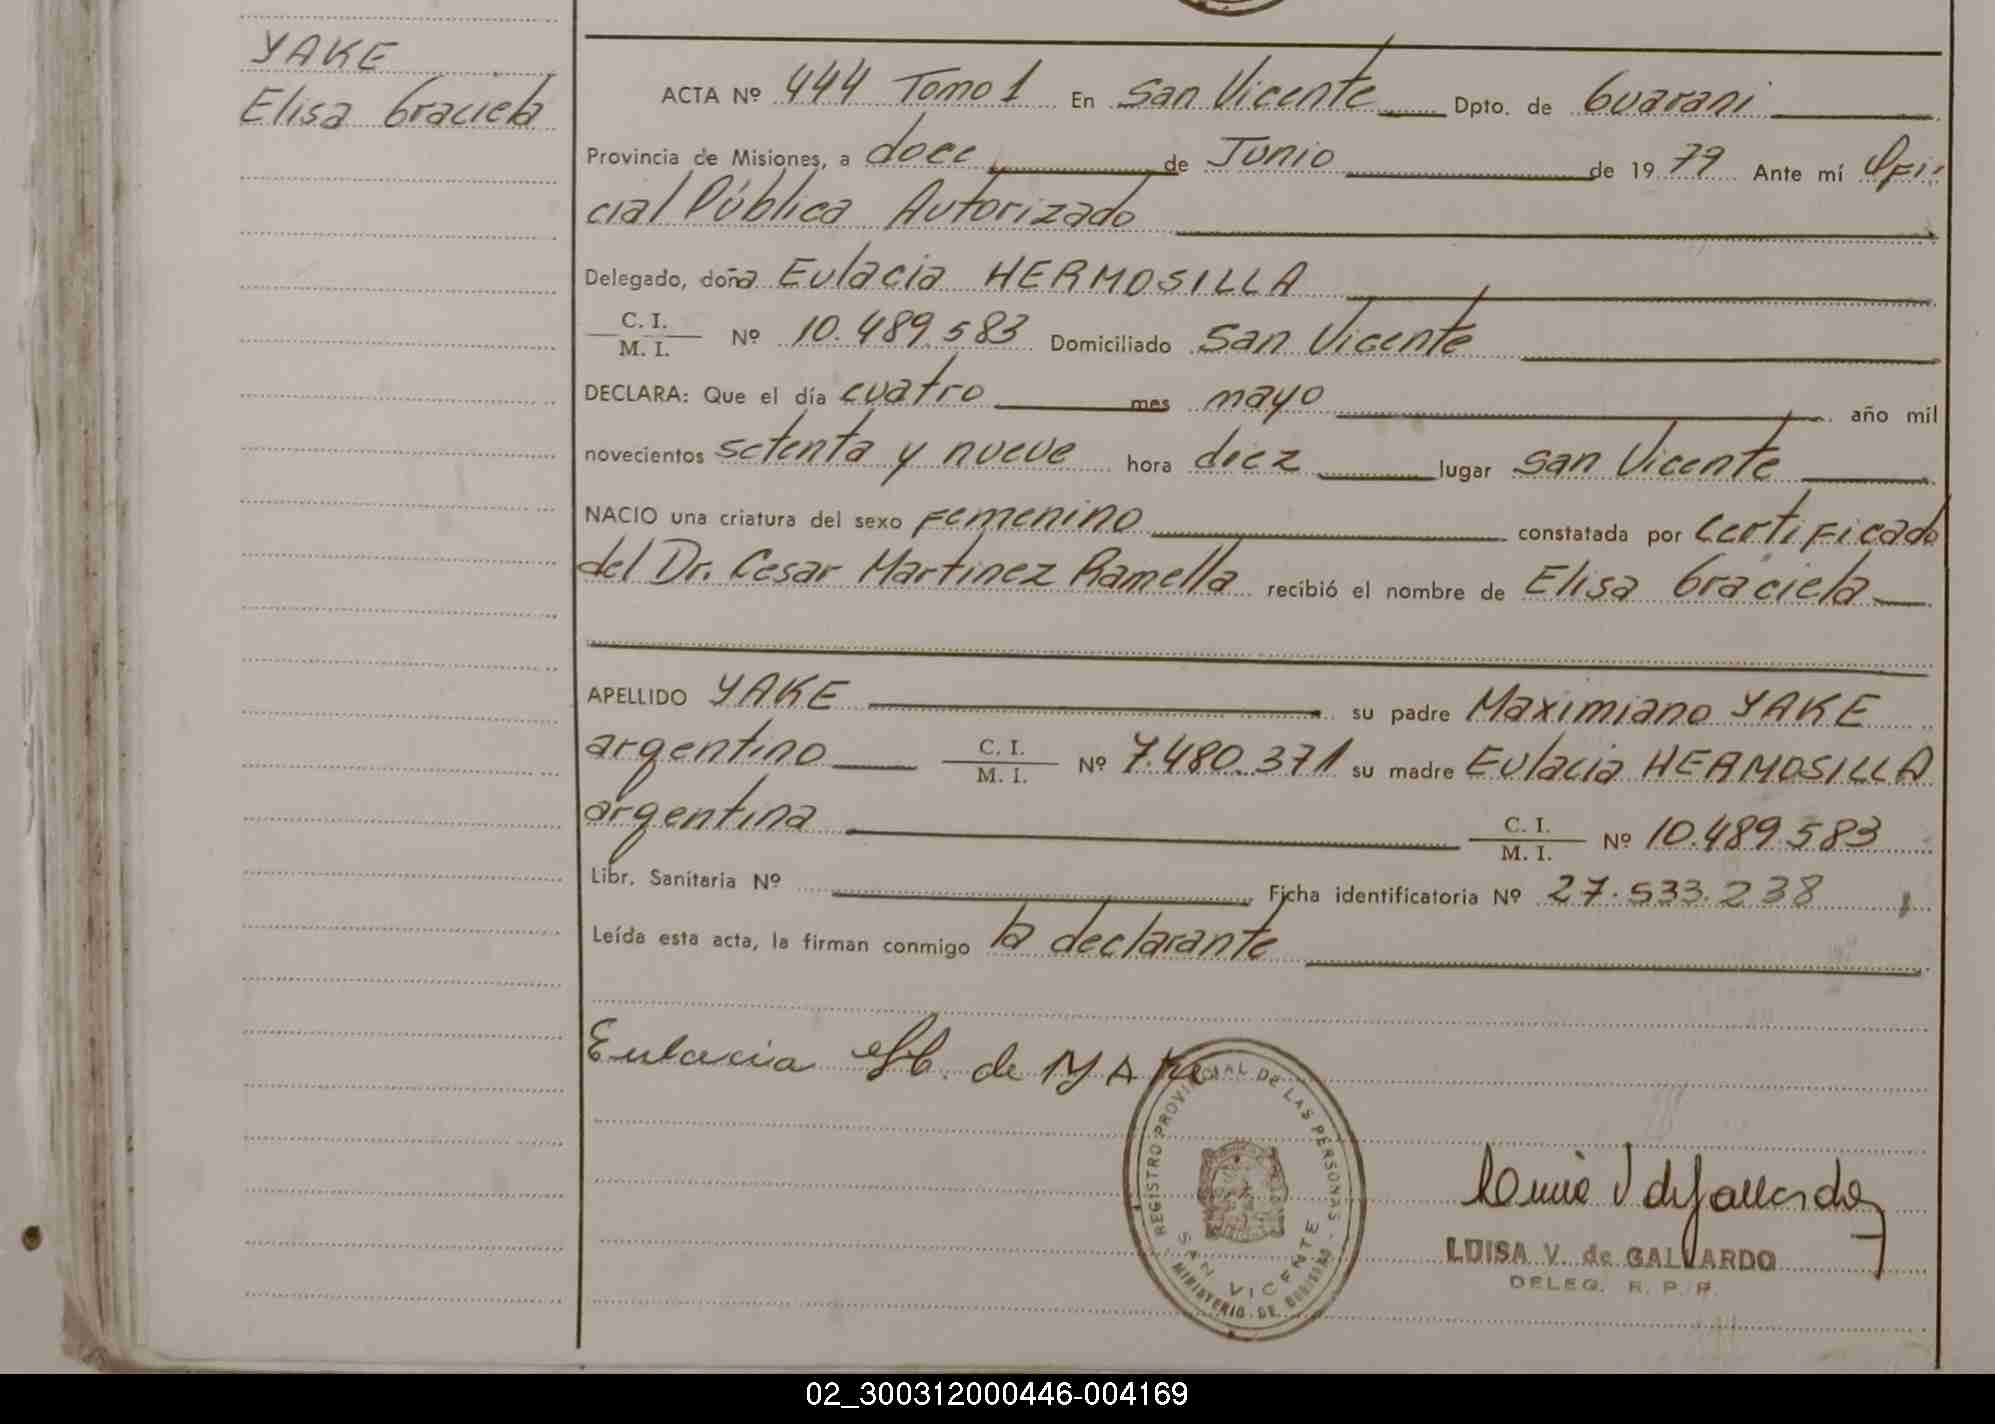 YAKE
Elisa Graciela
ACTA Nº 444 Tomo 1 En San Vicente Dpto. de Guarani
Provincia de Misiones, a doce de Junio de 1979 Ante mí Ofi-
cial Pública Autorizado
Delegado, doña Eulacia HERMOSILLA
C. I.
M. I. Nº 10.489.583 Domiciliado San Vicente
DECLARA: Que el día cuatro mes mayo año mil
novecientos setenta y nueve hora diez lugar San Vicente
NACIO una criatura del sexo Femenino constatada por Certificado
del Dr. Cesar Martinez Ramella recibió el nombre de Elisa Graciela
APELLIDO YAKE su padre Maximiano YAKE
argentino C. I. M. I. Nº 7.480.371 su madre Eulacia HERMOSILLA
argentina C. I. M. I. Nº 10.489.583
Libr. Sanitaria Nº Ficha identificatoria Nº 27.533.238
Leída esta acta, la firman conmigo la declarante
Eulacia H. de YAKe
REGISTRO PROVINCIAL DE LAS PERSONAS
SAN VICENTE
MINISTERIO DE
LUISA V. de GALLARDO
DELEG. R. P. P.
02_300312000446-004169